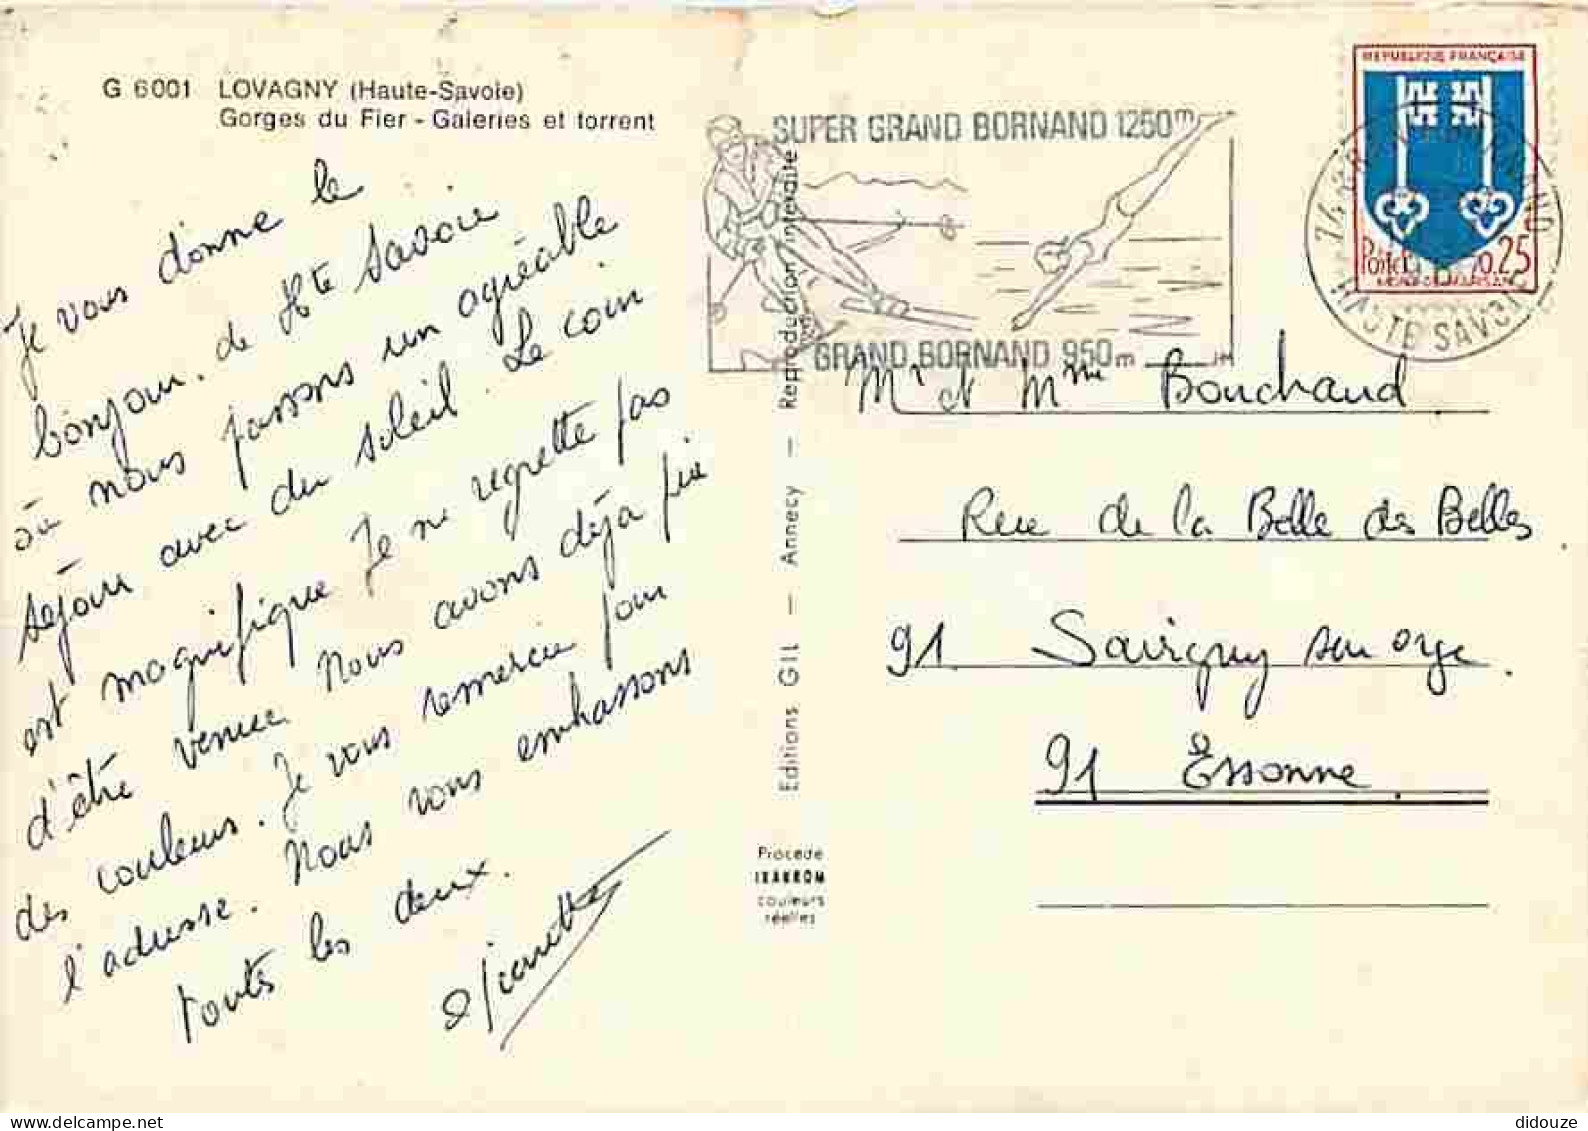 G 6001 LOVAGNY (Haute-Savoie)
Gorges du Fier - Galeries et torrent
Je vous donne le
bonjour. de Hte Savoie
où nous passons un agréable
séjour avec du soleil. Le coin
est magnifique Je ne regrette pas
d'être venue Nous avons déjà pris
des couleurs. Je vous remercie pour
l'adresse. Nous vous embrassons
toutes les deux.
Editions GIL — Annecy — Reproduction interdite
Procédé
IRAKROM
couleurs
réelles
SUPER GRAND BORNAND 1250m
GRAND BORNAND 950m
REPUBLIQUE FRANÇAISE
0.25
MONT-DE-MARSAN
HAUTE SAVOIE
Mr et Mme Bouchaud
Rue de la Belle des Belles
91 Savigny sur orge
91 Essonne
didouze